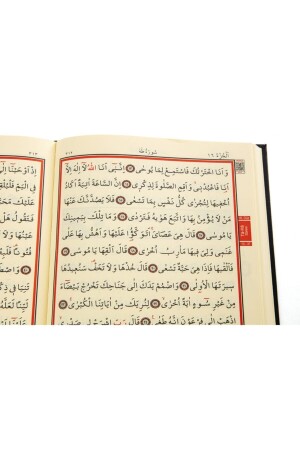 الجزء ١٦
سورة طه
٣١٢
وَاَنَا اخْتَرْتُكَ فَاسْتَمِعْ لِمَا يُوحٰى اِنَّنِي اَنَا اللّٰهُ لَا اِلٰهَ اِلَّا
اَنَا فَاعْبُدْنِي وَاَقِمِ الصَّلٰوةَ لِذِكْرِي اِنَّ السَّاعَةَ اٰتِيَةٌ اَكَادُ
اُخْفِيهَا لِتُجْزٰى كُلُّ نَفْسٍ بِمَا تَسْعٰى فَلَا يَصُدَّنَّكَ عَنْهَا
مَنْ لَا يُؤْمِنُ بِهَا وَاتَّبَعَ هَوٰيهُ فَتَرْدٰى وَمَا تِلْكَ بِيَمِينِكَ
يَا مُوسٰى قَالَ هِيَ عَصَايَ اَتَوَكَّؤُا عَلَيْهَا وَاَهُشُّ بِهَا عَلٰى
غَنَمِي وَلِيَ فِيهَا مَاٰرِبُ اُخْرٰى قَالَ اَلْقِهَا يَا مُوسٰى
فَاَلْقٰيهَا فَاِذَا هِيَ حَيَّةٌ تَسْعٰى قَالَ خُذْهَا وَلَا تَخَفْ سَنُعِيدُهَا
سِيرَتَهَا الْاُولٰى وَاضْمُمْ يَدَكَ اِلٰى جَنَاحِكَ تَخْرُجْ بَيْضَاءَ
مِنْ غَيْرِ سُوءٍ اٰيَةً اُخْرٰى لِنُرِيَكَ مِنْ اٰيَاتِنَا الْكُبْرٰى
اِذْهَبْ اِلٰى فِرْعَوْنَ اِنَّهُ طَغٰى قَالَ رَبِّ اشْرَحْ لِي صَدْرِي
٣١٣
اِذْ اَوْحَيْنَا اِلٰى
فِي الْيَمِّ فَلْيُلْقِهِ